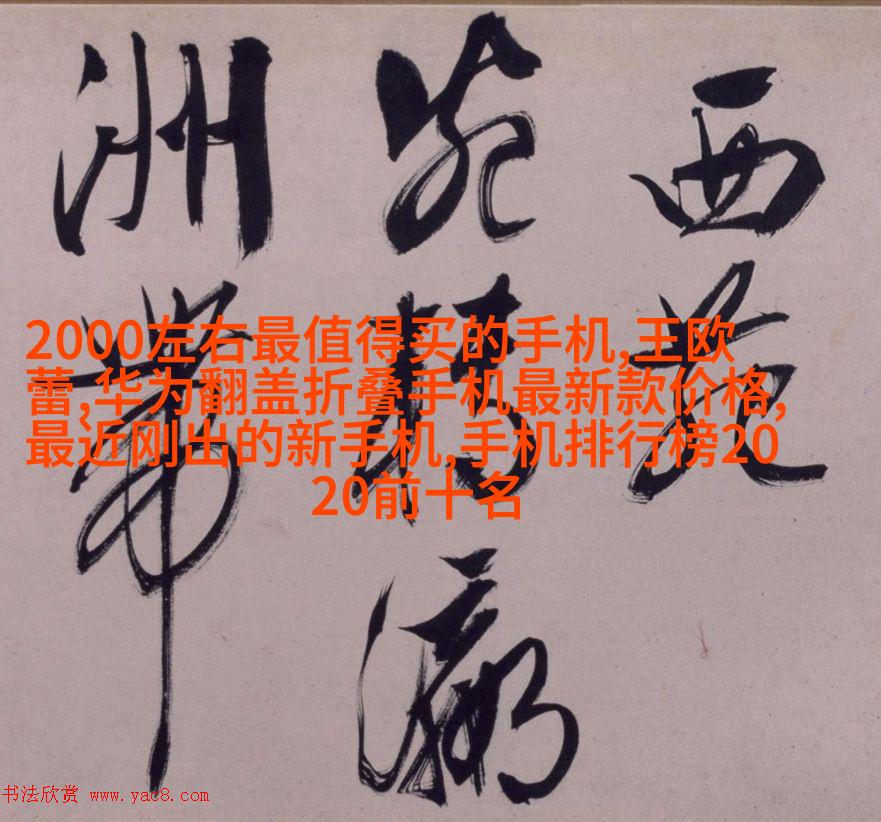 西苑
瀛
洲帶
2000左右最值得买的手机,王欧
蕾,华为翻盖折叠手机最新款价格,
最近刚出的新手机,手机排行榜20
20前十名
书法欣赏 www.yac8.com